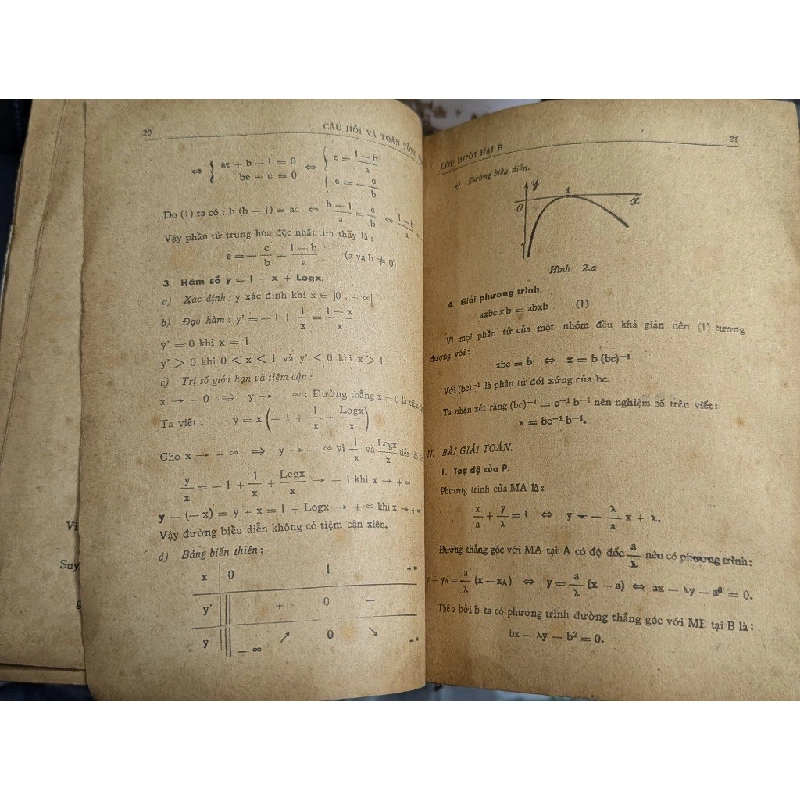 20
CÂU HỎI VÀ TOÁN
⇔ { ac + b − 1 = 0 ⇔ { c = (1 − b)/a
bc + c = 0 e = − c/b
Do (1) ta có : b (b − 1) = ac ⇔ (b − 1)/a = c/b ⇔
Vậy phần tử trung hòa độc nhất tìm thấy là :
e = − c/b = (1 − b)/a (a và b ≠ 0)
3. Hàm số y = 1 − x + Logx.
a) Xác định : y xác định khi x ∈ ]0, + ∞[
b) Đạo hàm : y' = − 1 + 1/x = (1 − x)/x
y' = 0 khi x = 1
y' > 0 khi 0 < x < 1 và y' < 0 khi x > 1
c) Trị số giới hạn và tiệm cận :
x → + 0 ⇒ y → − ∞ : Đường thẳng x = 0 là
Ta viết : y = x (− 1 + 1/x + Logx/x)
Cho x → + ∞ ⇒ y → − ∞ vì 1/x và Logx/x
y/x = − 1 + 1/x + Logx/x → − 1 khi x → + ∞
y − (−x) = y + x = 1 + Logx → + ∞ khi x → + ∞
Vậy đường biểu diễn không có tiệm cận xiên.
d) Bảng biến thiên :
x 0 1 + ∞
y' + 0 −
y − ∞ ↗ 0 ↘ − ∞
21
e) Đường biểu diễn.
y
1
O
x
Hình 2.a
4. Giải phương trình.
axbcxb = abxb . (1)
Vì mọi phần tử của một nhóm đều khả giản nên (1) tương
đương với :
xbc = b ⇔ x = b (bc)⁻¹
Với (bc)⁻¹ là phần tử đối xứng của bc.
Ta nhận xét rằng (bc)⁻¹ = c⁻¹ b⁻¹ nên nghiệm số trên viết :
x = bc⁻¹ b⁻¹.
II. BÀI GIẢI TOÁN.
1. Toạ độ của P.
Phương trình của MA là :
x/a + y/λ = 1 ⇔ y = − λ/a x + λ.
Đường thẳng góc với MA tại A có độ dốc a/λ nên có phương trình :
y − yA = a/λ (x − xA) ⇔ y = a/λ (x − a) ⇔ ax − λy − a² = 0.
Thế a bởi b ta có phương trình đường thẳng góc với MB tại B là :
bx − λy − b² = 0.